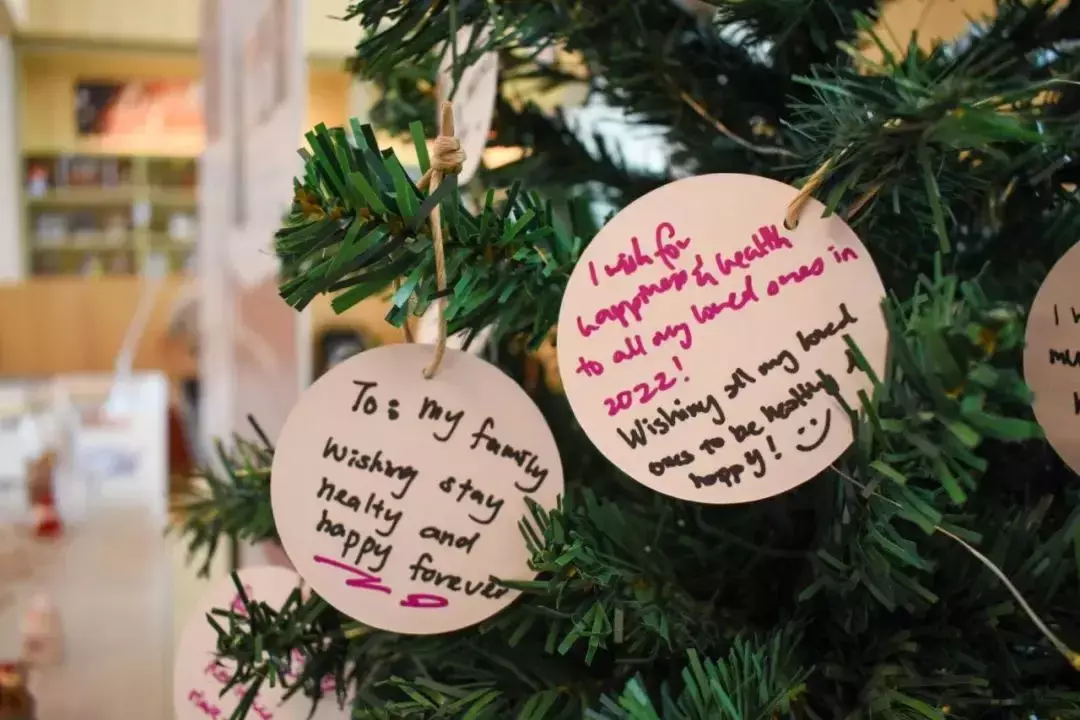 To: my family
Wishing stay
healty and
happy forever
I wish for
happiness & health
to all my loved ones in
2022!
Wishing all my loved
ones to be healthy &
happy! :)
I